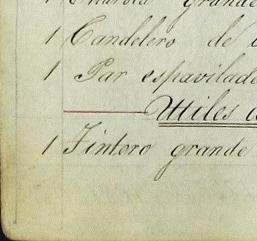 1 Candelero de
1 Par espavilade
Utiles
1 Tintero grande